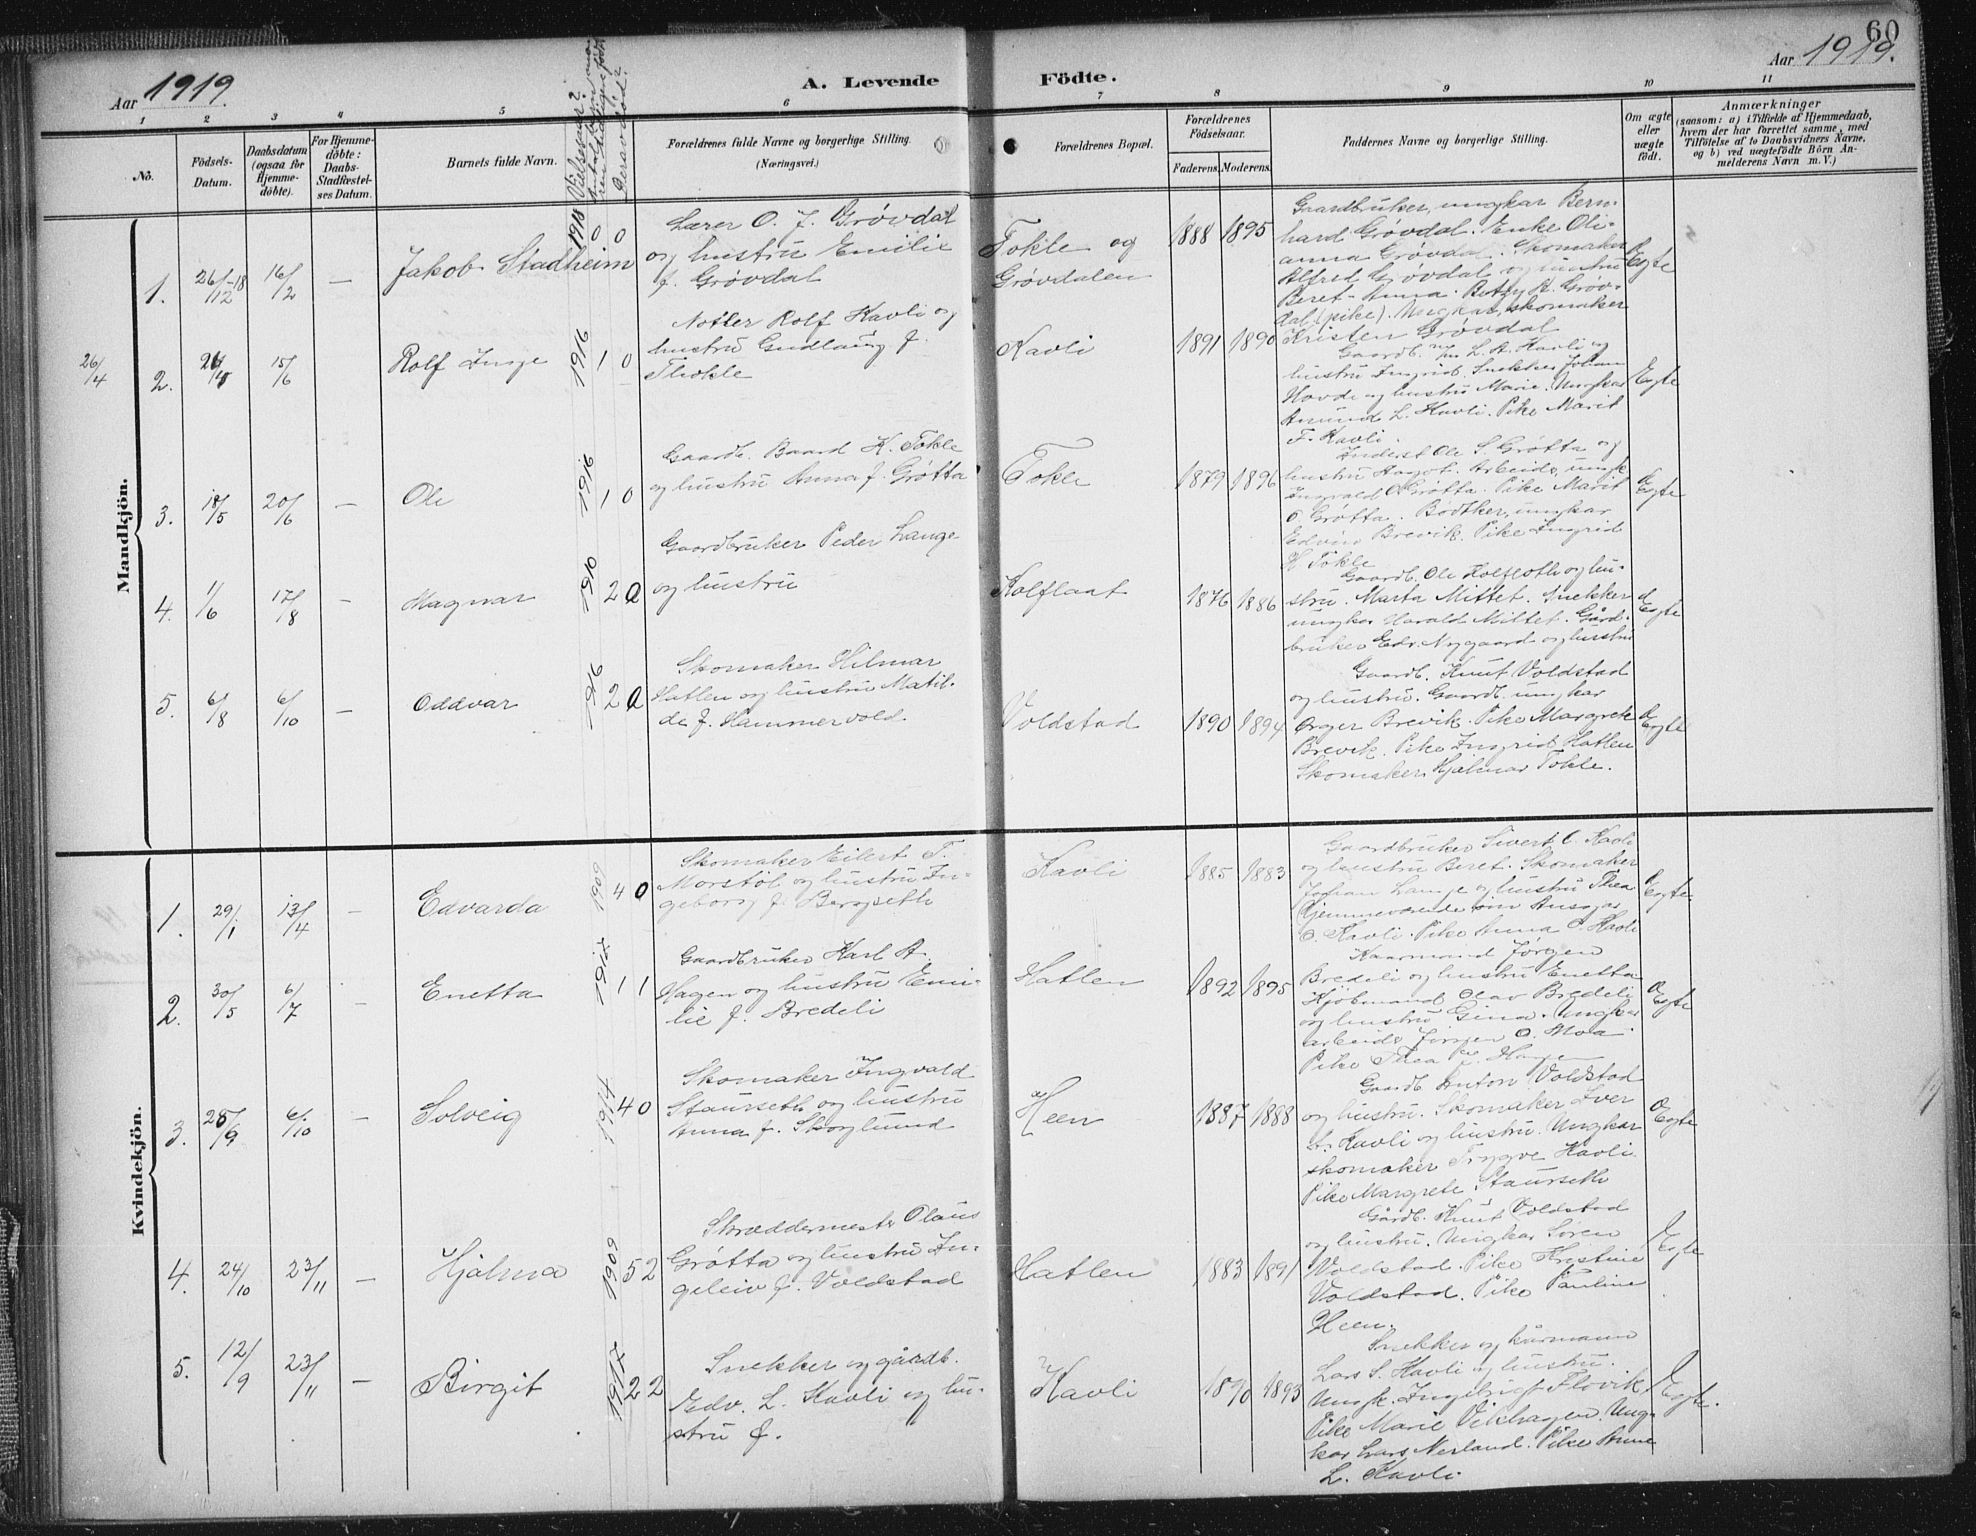 60
Aar 1919.
A. Levende Födte.
Aar 1919.
1 2 3 4 5 6 7 8 9 10 11
No.
Födsels-
Datum.
Daabsdatum
(ogsaa for
Hjemme-
döbte).
For Hjemme-
döbte:
Daabs-
Stadfæstel-
ses Datum.
Barnets fulde Navn.
Vielsesaar?
Derav död?
Forældrenes fulde Navne og borgerlige Stilling.
(Næringsvei.)
Forældrenes Bopæl.
Forældrenes
Födselsaar.
Faderens. Moderens.
Faddernes Navne og borgerlige Stilling.
Om ægte
eller
uægte
födt.
Anmærkninger
(saasom: a) i Tilfælde af Hjemmedaab,
hvem der har forrettet samme, med
Tilföielse af to Daabsvidners Navne,
og b) ved uægtefödte Börn An-
melderens Navn m. V.)
Mandkjön.
1. 26/12-18 16/2 — Jakob Stadheim 1918 0 0
Lærer O. J. Grøvdal
og hustru Emilie
f. Grøvdal
Tokle og
Grøvdalen
1888 1895
Gaardbruker, ungkar Bern-
hard Grøvdal. Enke Oli-
anna Grøvdal. Skomaker
Alfred Grøvdal og hustru
Beret-Anna. Betzy K. Grøv-
dal (pike). Ungkar, skomaker
Kristen Grøvdal
Ægte
26/4
2. 15/6 Rolf Inge 1916 1 0
Notler Rolf Kavli og
hustru Gudlaug f.
Thokle
Kavli
1891 1890
Gaardb. L. A. Kavli og
hustru Ingrid. Snekker Johan
Hovde og hustru Marie. Ungkar
Amund L. Kavli. Pike Marit
F. Kavli.
Ægte
3. 18/5 20/6 — Ole 1916 1 0
Gaardb. Baard K. Tokle
og hustru Anna f. Grøtta
Tokle
1879 1896
Inderst Ole S. Grøtta og
hustru Arbeider, ungk.
Ingvald O. Grøtta. Pike Marit
O. Grøtta. Bødtker, ungkar
Edvin Brevik. Pike Ingrid
H. Tokle
Ægte
4. 1/6 17/8 — Magnar 1910 2 0
Gaardbruker Peder Lange
og hustru
Kolflaat
1876 1886
Gaardb. Ole Kolfloth og hu-
stru. Marta Mittet. Snekker
ungkar Harald Mittet. Gård-
bruker Edv. Nygaard og hustru
Ægte
5. 6/8 6/10 — Oddvar 1916 2 0
Skomaker Hilmar
Hatlen og hustru Matil-
de f. Hammervold.
Voldstad
1890 1894
Gaardb. Knut Voldstad
og hustru. Gaardb. ungkar
Ørger Brevik. Pike Margrete
Brevik. Pike Ingrid Hatlen
Skomaker Hjalmar Tokle.
Ægte
Kvindekjön.
1. 29/1 13/4 — Edvarda 1909 4 0
Skomaker Eilert T.
Morstøl og hustru In-
geborg f. Bergseth
Kavli
1885 1883
Gaardbruker Sivert O. Kavli
og hustru Beret. Skomaker
Johan Lange og hustru Thea
Hjemmeværende søn Ansgar
O. Kavli. Pike Anna O. Kavli
Ægte
2. 30/5 6/7 — Enetta 1 1
Gaardbruker Karl A.
Hagen og hustru Emi-
lie f. Bredeli
Hatlen
1892 1895
Kaarmand Jørgen
Bredeli og hustru Enetta
Kjøbmand Olav Bredeli
og hustru Gina. Ungkar
arbeider Jørgen O. Moa.
Pike Thea K. Hagen
Ægte
3. 25/9 6/10 — Solveig 1914 4 0
Skomaker Ingvald
Staurseth og hustru
Anna f. Skoglund
Heen
1887 1888
Gaardb. Anton Voldstad
og hustru. Skomaker Iver
A. Kavli og hustru. Ungkar
skomaker Trygve Kavli
Pike Margrete Staurseth
Ægte
4. 24/10 23/11 — Hjalma 1909 5 2
Skræddermester Olaus
Grøtta og hustru In-
geleiv f. Voldstad
Hatlen
1883 1891
Gårdb. Knut Voldstad
og hustru. Ungkar Søren
Voldstad. Pike Kristine
Voldstad. Pike Pauline
Heen.
Ægte
5. 12/9 23/11 — Birgit 1917 2 2
Snekker og gårdb.
Edv. L. Kavli og hu-
stru f.
Kavli
1890 1893
Snekker og kårmann
Lars S. Kavli og hustru.
Ungk. Ingebrigt Flovik
Pike Marie Vikhagen. Ung-
kar Lars Nerland. Pike Anne
L. Kavli.
Ægte.